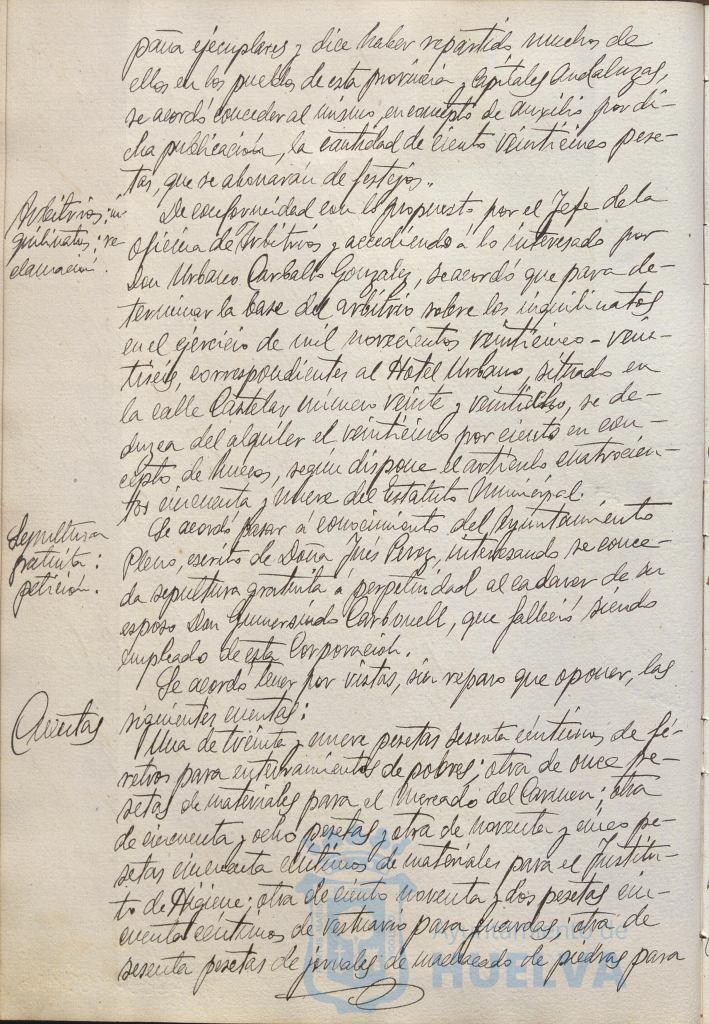 paña ejemplares y dice haber repartido muchos de
ellos en los pueblos de esta provincia y Capitales Andaluzas,
se acordó conceder al mismo, en concepto de auxilio por di-
cha publicación, la cantidad de ciento veinticinco pese-
tas, que se abonarán de festejos.
Arbitrios: in-
quilinatos: re-
clamación.
De conformidad con lo propuesto por el Jefe de la
oficina de Arbitrios y accediendo á lo interesado por
Don Urbano Carballo Gonzalez, se acordó que para de-
terminar la base del arbitrio sobre los inquilinatos
en el ejercicio de mil novecientos veinticinco-vein-
tiseis, correspondientes al Hotel Urbano, situado en
la calle Castelar número veinte y veintidos, se de-
duzca del alquiler el veinticinco por ciento en con-
cepto de huecos, según dispone el artículo cuatrocien-
tos cincuenta y nueve del Estatuto Municipal.
Sepultura
gratuita:
petición.
Se acordó pasar á conocimiento del Ayuntamiento
Pleno, escrito de Doña Inés Perez, interesando se conce-
da sepultura gratuita á perpetuidad al cadaver de su
esposo Don Gumersindo Carbonell, que falleció siendo
empleado de esta Corporación.
Cuentas
Se acordó tener por vistas, sin reparo que oponer, las
siguientes cuentas:
Una de treinta y nueve pesetas sesenta céntimos de fé-
retros para enterramientos de pobres; otra de once pe-
setas de materiales para el Mercado del Carmen; otra
de cincuenta y ocho pesetas y otra de noventa y cinco pe-
setas cincuenta céntimos de materiales para el Institu-
to de Higiene; otra de ciento noventa y dos pesetas cin-
cuenta céntimos de vestuario para guardas; otra de
sesenta pesetas de jornales de machacado de piedras para
Ayuntamiento de
HUELVA